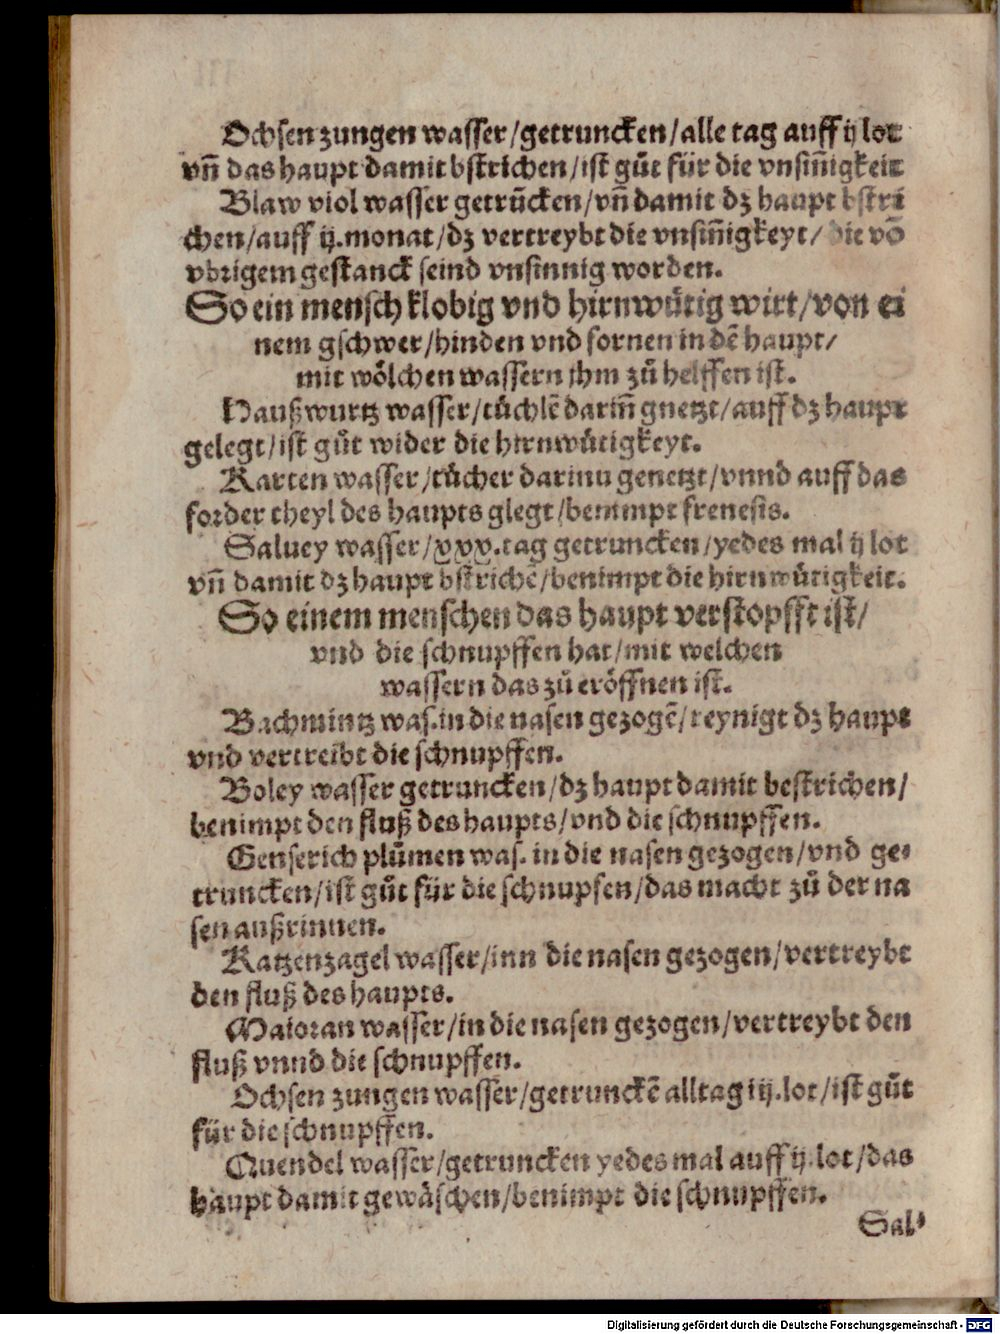 Ochsen zungen wasser/getruncken/alle tag auff ij lot
vñ das haupt damit bstrichen/ist gůt für die vnsiñigkeit
Blaw viol wasser getrũcken/vñ damit dz haupt bstri
chen/auff ij.monat/dz vertreybt die vnsiñigkeyt/die võ
vbrigem gestanck seind vnsinnig worden.
So ein mensch klobig vnd hirnwůtig wirt/von ei
nem gschwer/hinden vnd fornen in dẽ haupt/
mit wölchen wassern ihm zů helffen ist.
Haußwurtz wasser/tůchlẽ dariñ gnetzt/auff dz haupt
gelegt/ist gůt wider die hirnwůtigkeyt.
Karten wasser/tůcher darinn genetzt/vnnd auff das
forder theyl des haupts glegt/benimpt frenesis.
Saluey wasser/xxx.tag getruncken/yedes mal ij lot
vñ damit dz haupt bstrichẽ/benimpt die hirnwůtigkeit.
So einem menschen das haupt verstopfft ist/
vnd die schnupffen hat/mit welchen
wassern das zů eröffnen ist.
Bachmintz was.in die nasen gezogẽ/reynigt dz haupt
vnd vertreibt die schnupffen.
Boley wasser getruncken/dz haupt damit bestrichen/
benimpt den fluß des haupts/vnd die schnupffen.
Genserich plůmen was. in die nasen gezogen/vnd ge-
truncken/ist gůt für die schnupfen/das macht zů der na
sen außrinnen.
Katzenzagel wasser/inn die nasen gezogen/vertreybt
den fluß des haupts.
Maioran wasser/in die nasen gezogen/vertreybt den
fluß vnnd die schnupffen.
Ochsen zungen wasser/getrunckẽ alltag iij.lot/ist gůt
für die schnupffen.
Quendel wasser/getruncken yedes mal auff ij.lot/das
haupt damit gewäschen/benimpt die schnupffen.
Sal-
Digitalisierung gefördert durch die Deutsche Forschungsgemeinschaft - DFG